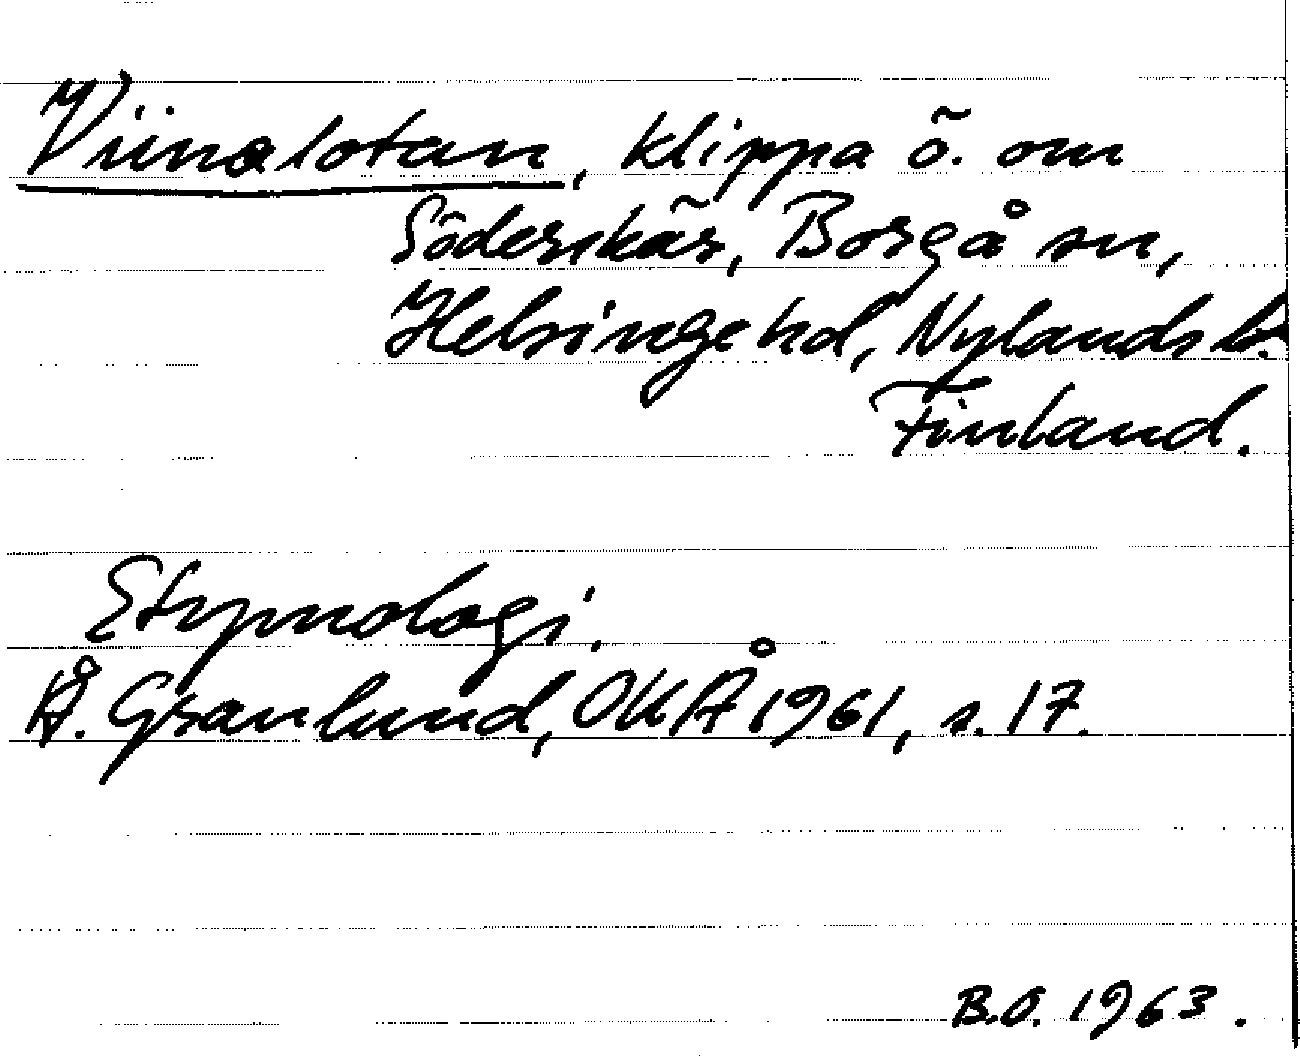 Viinalotan, klippa ö. om
Söderskär, Borgå sn,
Helsinge hd, Nylands l.
Finland.
Etymologi.
Å. Granlund, OUÅ 1961, s. 17.
B.O. 1963.